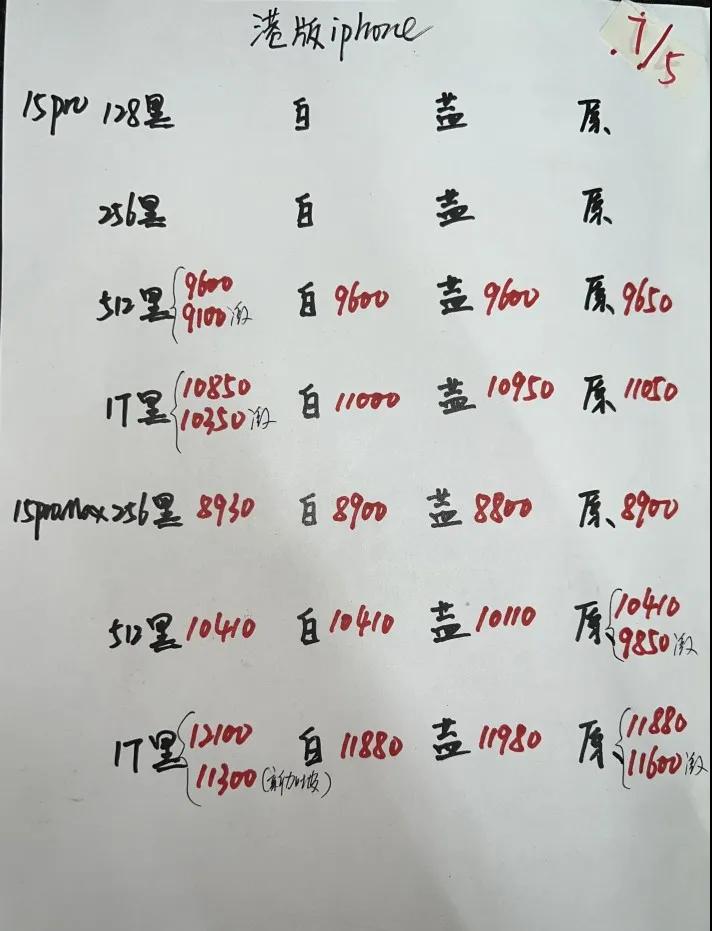 港版iphone
7/5
15pro 128黑 白 蓝 原
256黑 白 蓝 原
512黑 9600 9100激 白9600 蓝9600 原9650
1T黑 10850 10350激 白11000 蓝10950 原11050
15proMax256黑8930 白8900 蓝8800 原8900
512黑10410 白10410 蓝10110 原 10410 9850激
1T黑 12100 11300(新加坡) 白11880 蓝11980 原 11880 11600激